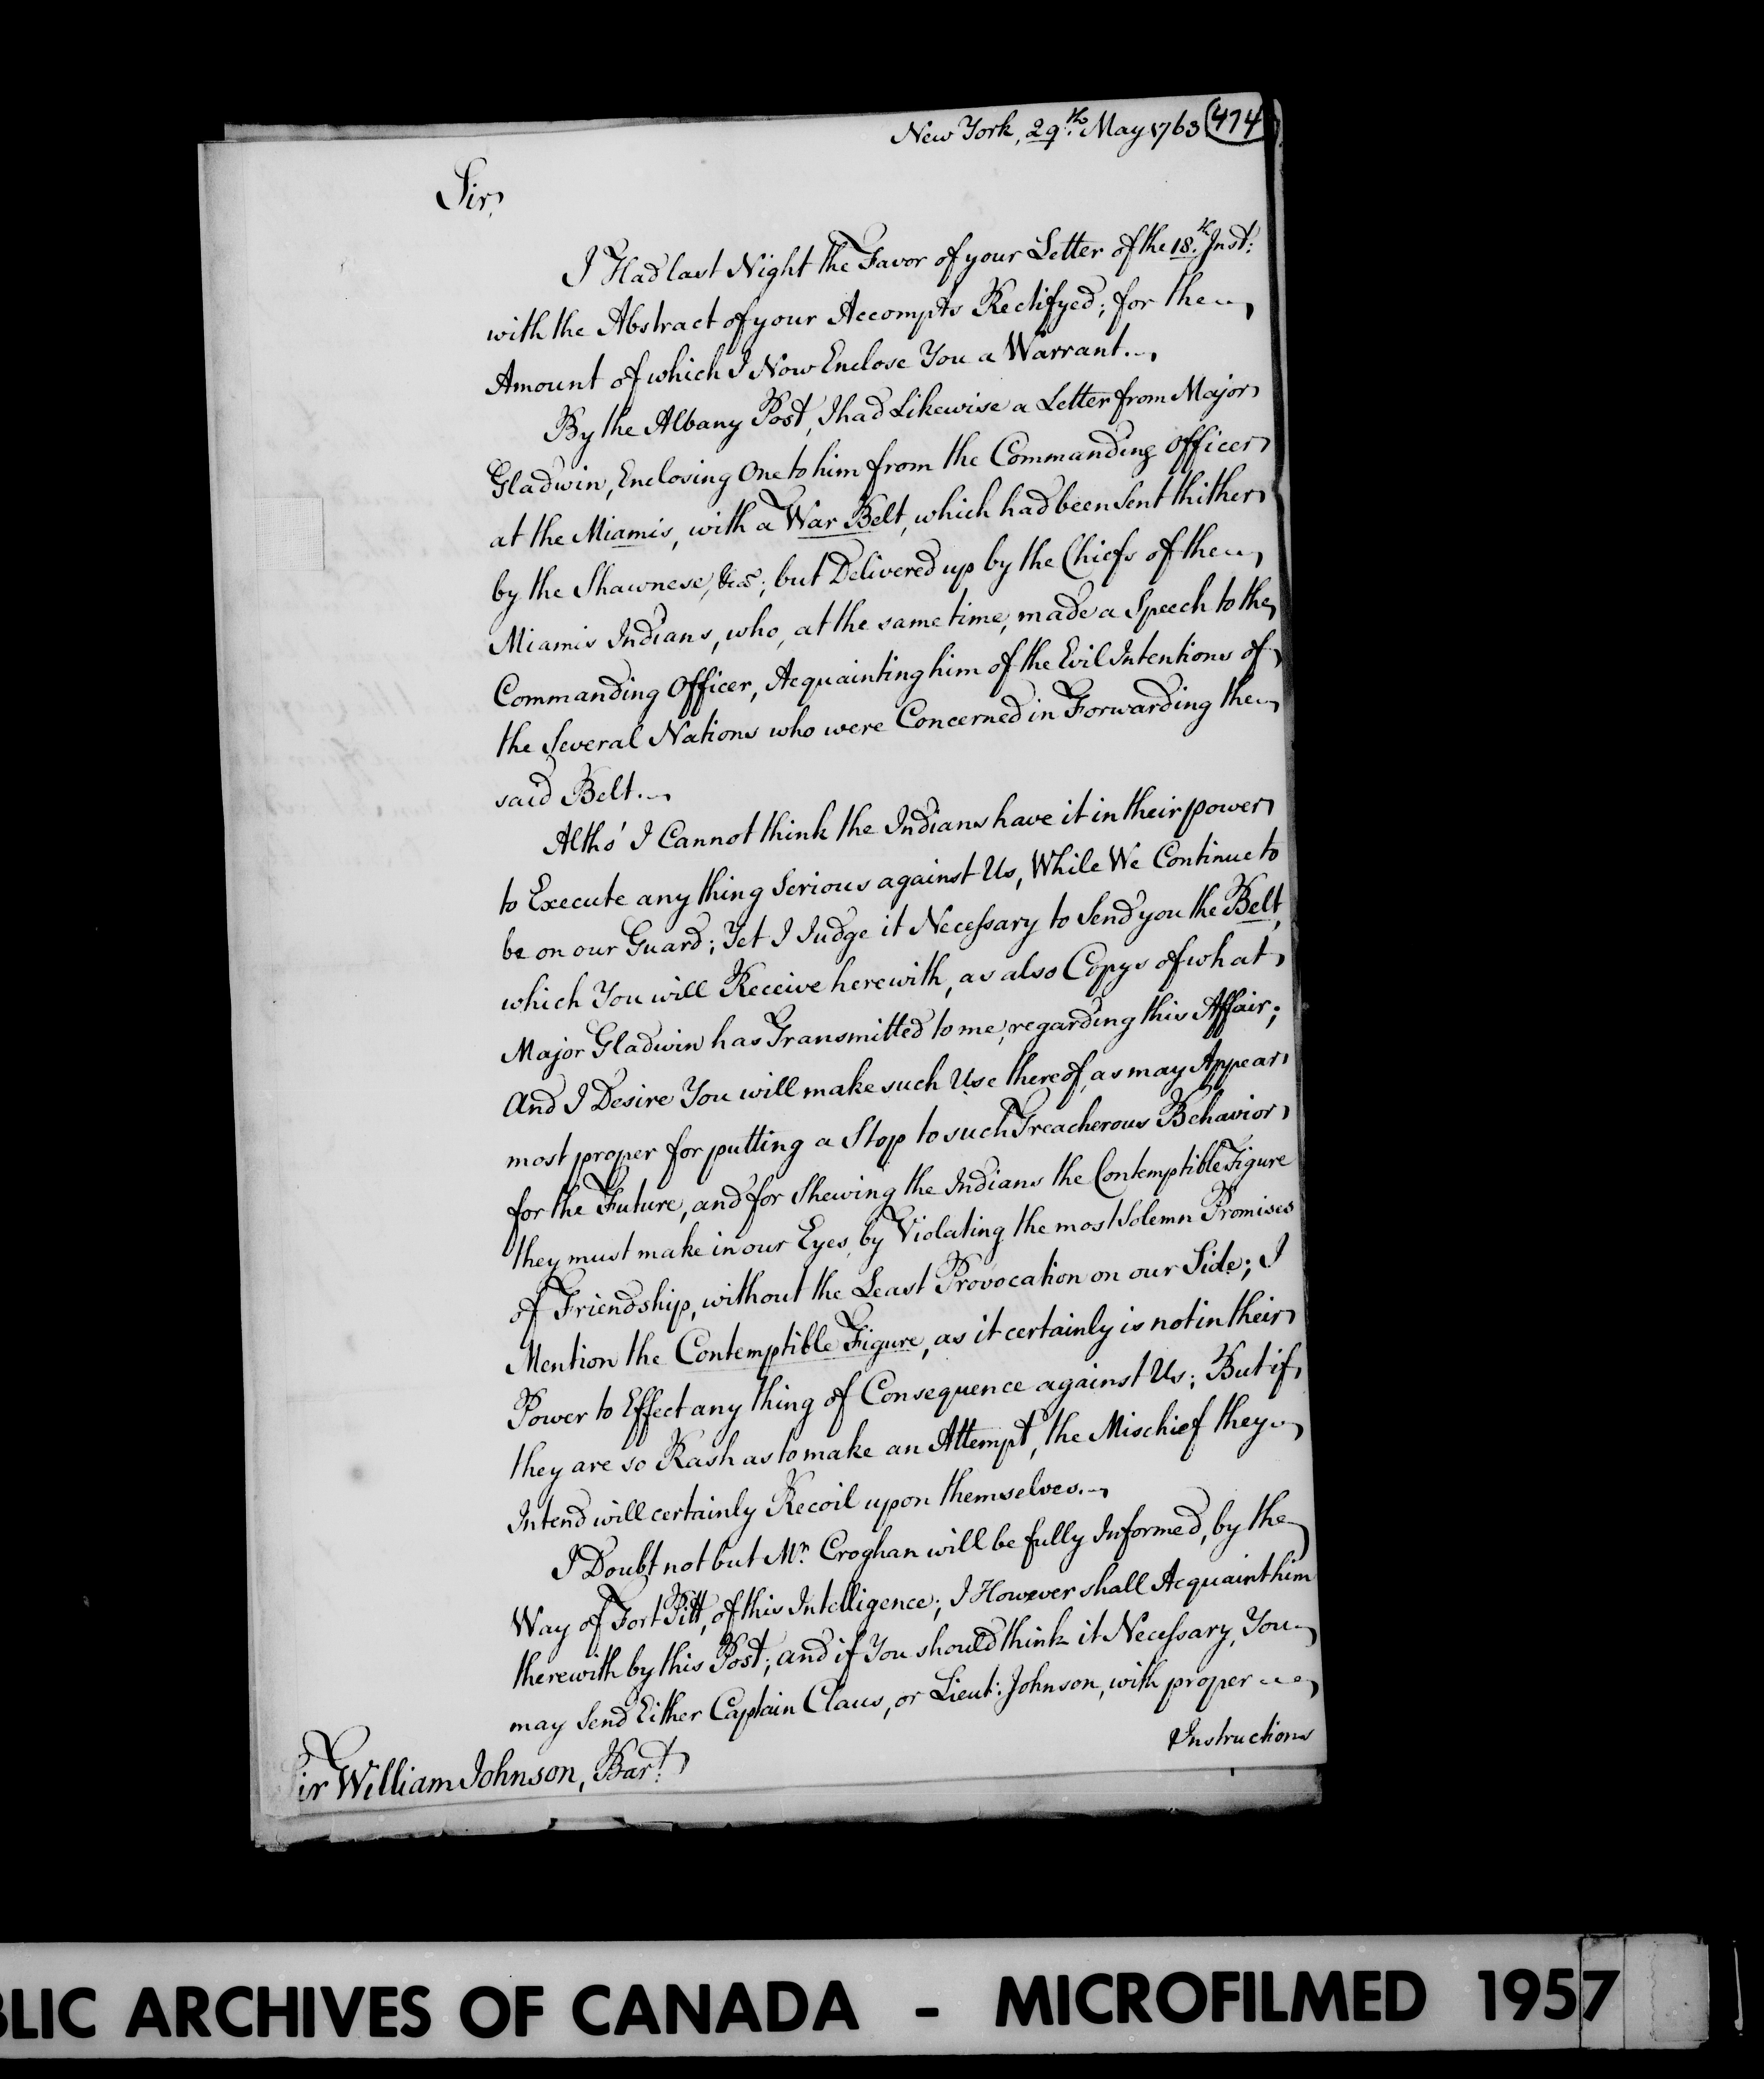 New York, 29.th May 1763 (474)
Sir,
I Had last Night the Favor of your Letter of the 18.th Inst:
with the Abstract of your Accompts Rectifyed; for the
Amount of which I Now Enclose You a Warrant.
By the Albany Post, I had Likewise a Letter from Major
Gladwin, Enclosing One to him from the Commanding Officer
at the Miamis, with a War Belt, which had been Sent thither
by the Shawnese, &ca; but Delivered up by the Chiefs of the
Miamis Indians, who, at the same time, made a Speech to the
Commanding Officer, Acquainting him of the Evil Intentions of
the Several Nations who were Concerned in Forwarding the
said Belt.
Altho' I Cannot think the Indians have it in their power
to Execute any thing Serious against Us, While We Continue to
be on our Guard; Yet I Judge it Necessary to Send you the Belt,
which You will Receive herewith, as also Copys of what
Major Gladwin has Transmitted to me, regarding this Affair;
And I Desire You will make such Use thereof, as may Appear
most proper for putting a Stop to such Treacherous Behavior
for the Future, and for Shewing the Indians the Contemptible Figure
they must make in our Eyes, by Violating the most Solemn Promises
of Friendship, without the Least Provocation on our Side; I
Mention the Contemptible Figure, as it certainly is not in their
Power to Effect any thing of Consequence against Us; But if
they are so Rash as to make an Attempt, the Mischief they
Intend will certainly Recoil upon themselves.
I Doubt not but Mr. Croghan will be fully Informed, by the
Way of Fort Pitt, of this Intelligence; I However shall Acquaint him
therewith by this Post; and if You should think it Necessary, You
may Send Either Captain Claus, or Lieut: Johnson, with proper
Instructions
Sir William Johnson, Bart.
BLIC ARCHIVES OF CANADA - MICROFILMED 1957